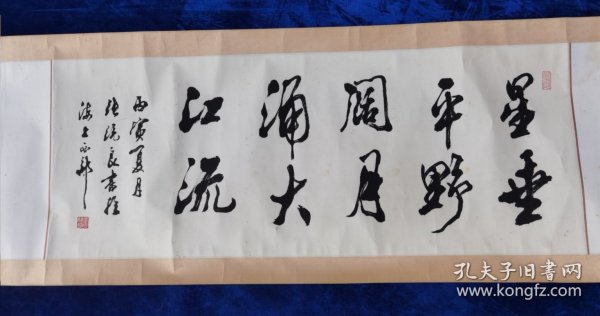 星垂
平野
阔月
涌大
江流
丙寅夏月
张统良书於
海上
孔夫子旧书网
www.kongfz.com